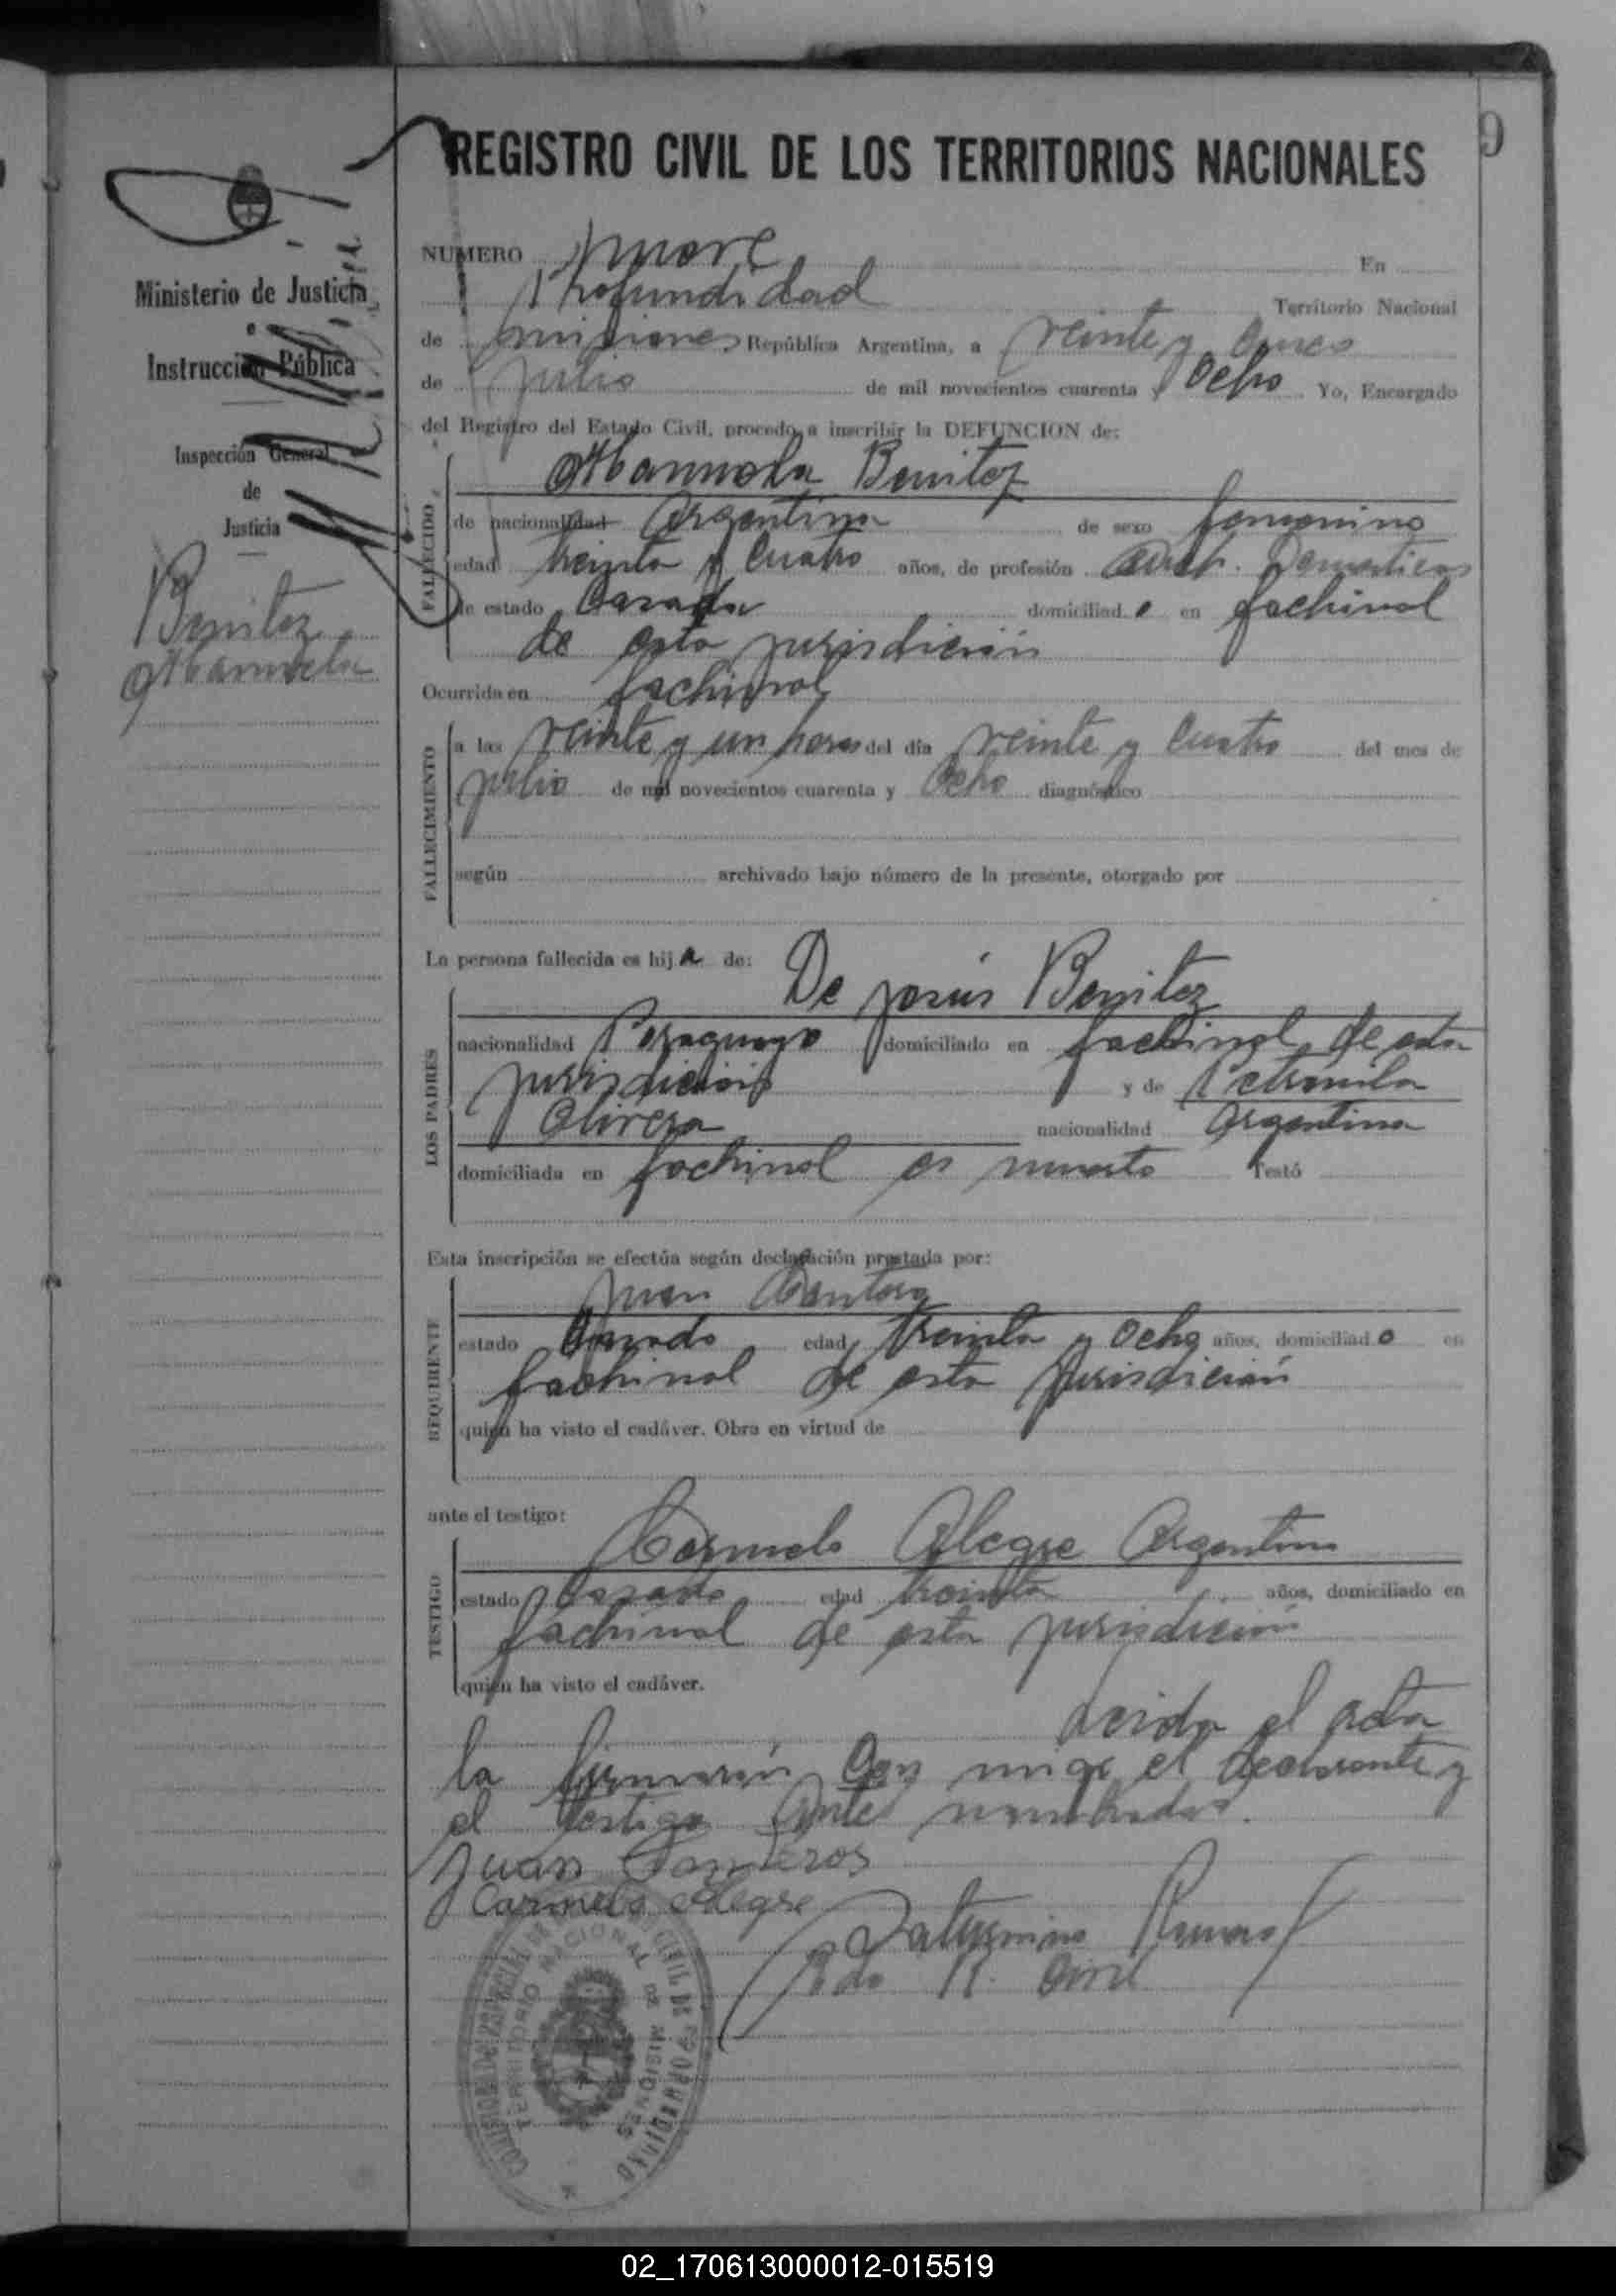 9
REGISTRO CIVIL DE LOS TERRITORIOS NACIONALES
Ministerio de Justicia
e
Instrucción Pública
Inspección General
de
Justicia
Benitez
Mannuela
NUMERO nueve En
Profundidad Territorio Nacional
de misiones República Argentina, a veinte y cinco
de julio de mil novecientos cuarenta y Ocho Yo, Encargado
del Registro del Estado Civil, procedo a inscribir la DEFUNCION de:
FALLECIDO
Mannuela Benitez
de nacionalidad Argentina de sexo femenino
edad treinta y Cuatro años, de profesión Domesticos
de estado Casada domiciliad o en fachinal
de esta jurisdicion
Ocurrida en fachinal
FALLECIMIENTO
a las veinte y un horas del día veinte y Cuatro del mes de
julio de mil novecientos cuarenta y Ocho diagnóstico
según archivado bajo número de la presente, otorgado por
La persona fallecida es hij a de:
LOS PADRES
De jesús Benitez
nacionalidad Paraguayo domiciliado en fachinal de esta
jurisdicion y de Petronila
Olivera nacionalidad Argentina
domiciliada en fachinal es muerto Testó
Esta inscripción se efectúa según declaración prestada por:
REQUIRENTE
juan
estado Casado edad treinta y Ocho años, domiciliad o en
fachinal de esta jurisdicion
quien ha visto el cadáver. Obra en virtud de
ante el testigo:
TESTIGO
Carmelo Alegre Argentino
estado Casado edad treinta años, domiciliado en
fachinal de esta jurisdicion
quien ha visto el cadáver.
Leida el acta
la firmarán Con migo el declarante y
el testigo Antes nombrados.
Juan
Carmelo Alegre
Saturnino
R. Civil
TERRITORIO NACIONAL DE MISIONES
02_170613000012-015519